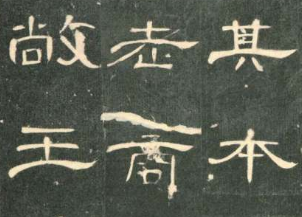 其本
老商
敞王